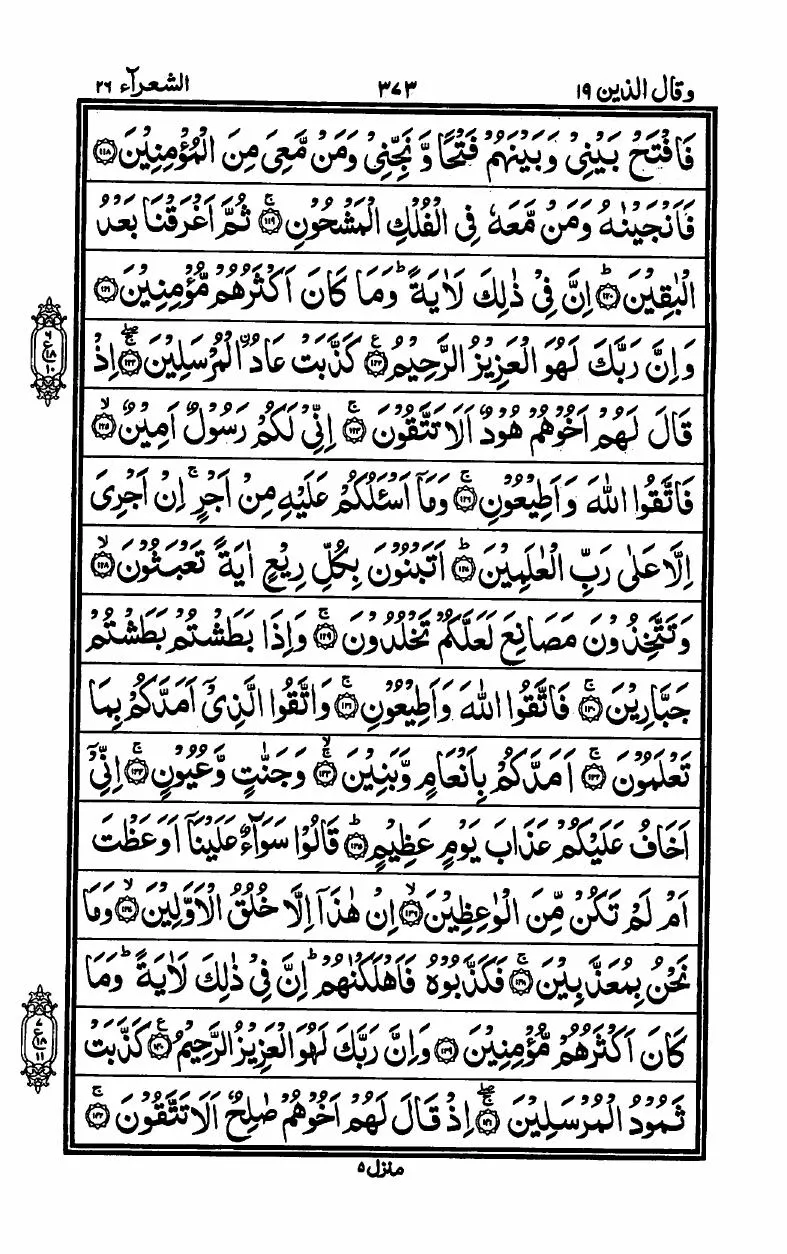 وقال الذين ١٩ ٣٧٣ الشعرآء ٢٦
فَافْتَحْ بَيْنِىْ وَبَيْنَهُمْ فَتْحًا وَّ نَجِّنِىْ وَمَنْ مَّعِىَ مِنَ الْمُؤْمِنِيْنَ ۝١١٨
فَاَنْجَيْنٰهُ وَمَنْ مَّعَهٗ فِى الْفُلْكِ الْمَشْحُوْنِ ۝١١٩ۚ ثُمَّ اَغْرَقْنَا بَعْدُ
الْبٰقِيْنَ ۝١٢٠ؕ اِنَّ فِىْ ذٰلِكَ لَاٰيَةً ؕ وَمَا كَانَ اَكْثَرُهُمْ مُّؤْمِنِيْنَ ۝١٢١
وَاِنَّ رَبَّكَ لَهُوَ الْعَزِيْزُ الرَّحِيْمُ ۝١٢٢ۧ كَذَّبَتْ عَادُ ۨالْمُرْسَلِيْنَ ۝١٢٣ۚۖ اِذْ
٦
ع
١٨
١٠
قَالَ لَهُمْ اَخُوْهُمْ هُوْدٌ اَلَا تَتَّقُوْنَ ۝١٢٤ۚ اِنِّىْ لَكُمْ رَسُوْلٌ اَمِيْنٌ ۝١٢٥ۙ
فَاتَّقُوا اللّٰهَ وَاَطِيْعُوْنِ ۝١٢٦ۚ وَمَاۤ اَسْئَلُكُمْ عَلَيْهِ مِنْ اَجْرٍ ۚ اِنْ اَجْرِىَ
اِلَّا عَلٰى رَبِّ الْعٰلَمِيْنَ ۝١٢٧ؕ اَتَبْنُوْنَ بِكُلِّ رِيْعٍ اٰيَةً تَعْبَثُوْنَ ۝١٢٨ۙ
وَتَتَّخِذُوْنَ مَصَانِعَ لَعَلَّكُمْ تَخْلُدُوْنَ ۝١٢٩ۚ وَاِذَا بَطَشْتُمْ بَطَشْتُمْ
جَبَّارِيْنَ ۝١٣٠ۚ فَاتَّقُوا اللّٰهَ وَاَطِيْعُوْنِ ۝١٣١ۚ وَاتَّقُوا الَّذِىْۤ اَمَدَّكُمْ بِمَا
تَعْلَمُوْنَ ۝١٣٢ۚ اَمَدَّكُمْ بِاَنْعَامٍ وَّبَنِيْنَ ۝١٣٣ۚۙ وَجَنّٰتٍ وَّعُيُوْنٍ ۝١٣٤ۚ اِنِّىْۤ
اَخَافُ عَلَيْكُمْ عَذَابَ يَوْمٍ عَظِيْمٍ ۝١٣٥ؕ قَالُوْا سَوَآءٌ عَلَيْنَاۤ اَوَعَظْتَ
اَمْ لَمْ تَكُنْ مِّنَ الْوٰعِظِيْنَ ۝١٣٦ۙ اِنْ هٰذَاۤ اِلَّا خُلُقُ الْاَوَّلِيْنَ ۝١٣٧ۙ وَمَا
نَحْنُ بِمُعَذَّبِيْنَ ۝١٣٨ۚ فَكَذَّبُوْهُ فَاَهْلَكْنٰهُمْ ؕ اِنَّ فِىْ ذٰلِكَ لَاٰيَةً ؕ وَمَا
كَانَ اَكْثَرُهُمْ مُّؤْمِنِيْنَ ۝١٣٩ وَاِنَّ رَبَّكَ لَهُوَ الْعَزِيْزُ الرَّحِيْمُ ۝١٤٠ۧ كَذَّبَتْ
٧
ع
١٨
١١
ثَمُوْدُ الْمُرْسَلِيْنَ ۝١٤١ۚۖ اِذْ قَالَ لَهُمْ اَخُوْهُمْ صٰلِحٌ اَلَا تَتَّقُوْنَ ۝١٤٢ۚ
منزل ٥